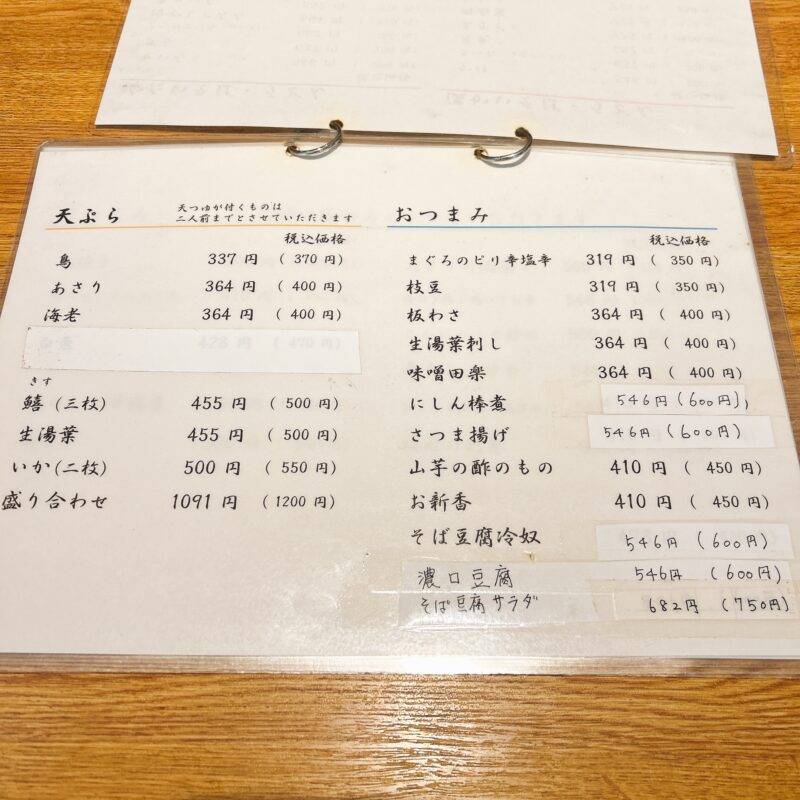 天ぷら
天つゆが付くものは
二人前までとさせていただきます
税込価格
鳥 337円 (370円)
あさり 364円 (400円)
海老 364円 (400円)
428円 (470円)
きす
鱚(三枚) 455円 (500円)
生湯葉 455円 (500円)
いか(二枚) 500円 (550円)
盛り合わせ 1091円 (1200円)
おつまみ
税込価格
まぐろのピリ辛塩辛 319円 (350円)
枝豆 319円 (350円)
板わさ 364円 (400円)
生湯葉刺し 364円 (400円)
味噌田楽 364円 (400円)
にしん棒煮 546円(600円)
さつま揚げ 546円 (600円)
山芋の酢のもの 410円 (450円)
お新香 410円 (450円)
そば豆腐冷奴 546円 (600円)
濃口豆腐 546円 (600円)
そば豆腐サラダ 682円 (750円)